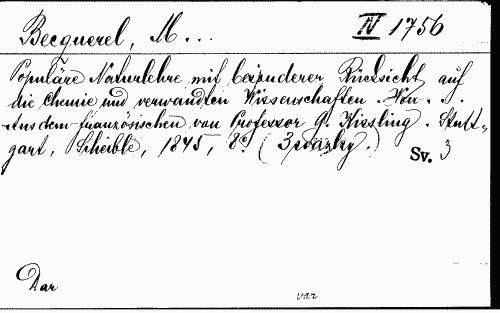 Becquerel, M... IV 1756
Populäre Naturlehre mit besonderer Rücksicht auf
die Chemie und verwandten Wissenschaften. Von...
Aus dem französischen von Professor G. Kissling. Stutt-
gart, Scheible, 1845, 8° (3 svazky.) Sv. 3
Dar
var